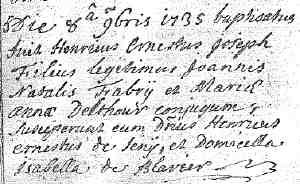 Die 8ᵃ 9bris 1735 baptisatus
fuit Henricus Ernestus Joseph
Filius legitimus Joannis
Natalis Fiabry et Maria
annæ Delthaur conjugum
susceperunt eum Dnus Henricus
ernestus de Seny, et Domicella
isabella de Blavier